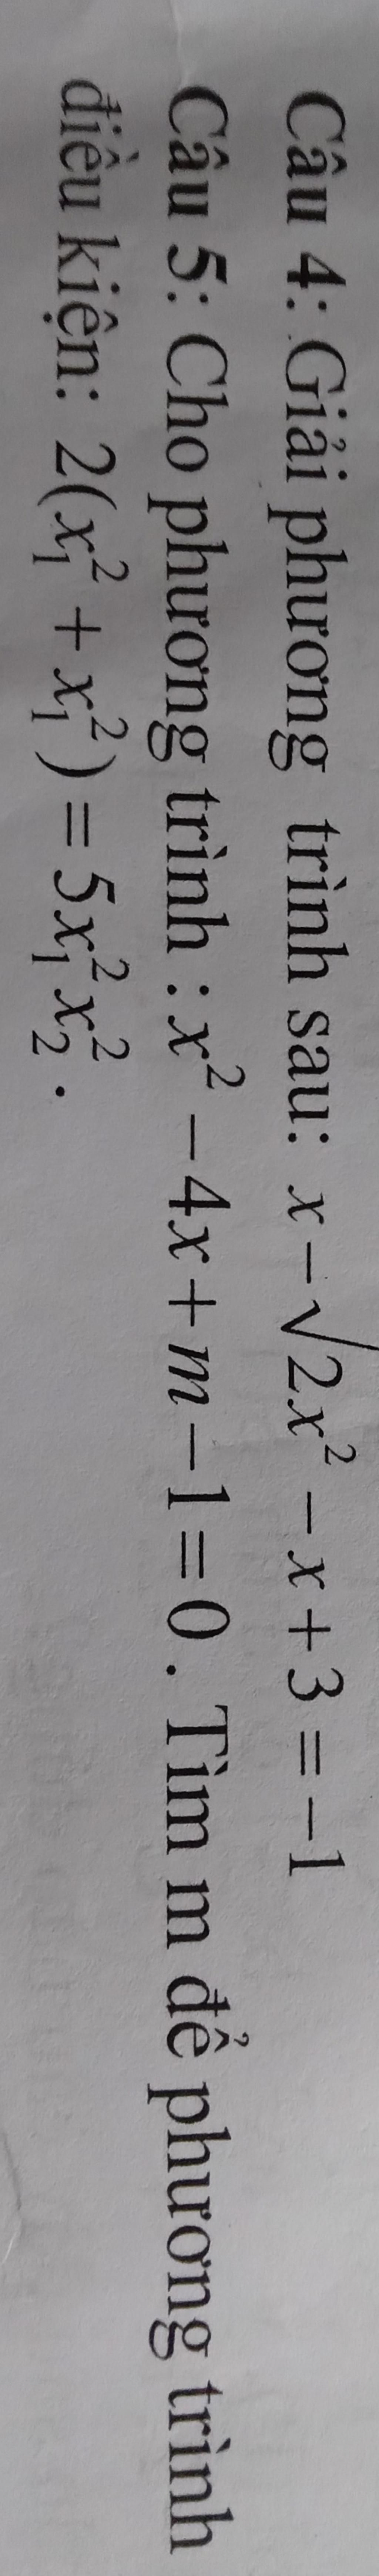 Câu 4: Giải phương trình sau: x − √2x² − x + 3 = −1
Câu 5: Cho phương trình : x² − 4x + m − 1 = 0 . Tìm m để phương trình
điều kiện: 2(x₁² + x₁²) = 5x₁²x₂² .